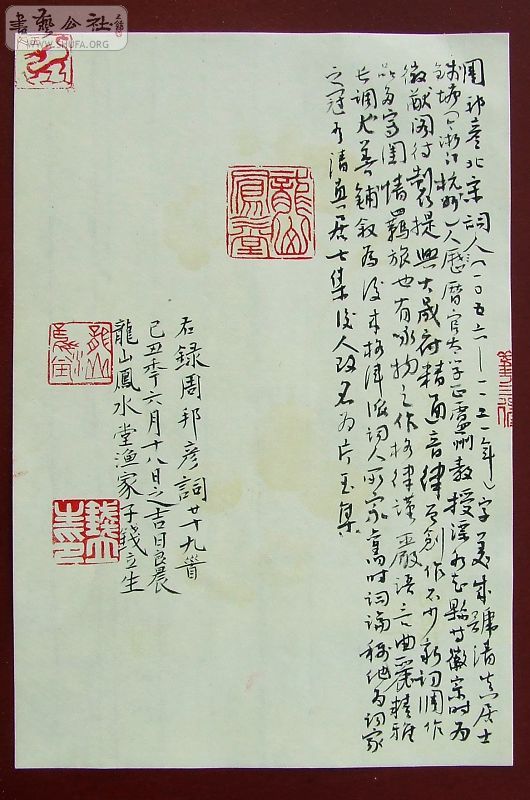 書藝公社
WWW.SHUFA.ORG
周邦彦北宋詞人(一〇五六—一一二一年)字美成號清真居士
钱塘(今浙江杭州)人歷官太学正廬州教授溧水知縣等徽宗時为
徽猷阁待制提舉大晟府精通音律曾创作不少新词调作
品多写闺情羁旅也有咏物之作格律谨严语言曲麗精雅
长调尤善铺叙为後来格律派词人所宗舊时词論稱他为词家
之冠有清真居士集後人改名为片玉集
右録周邦彦詞廿十九首
己丑季六月十八日之吉日良晨
龍山鳳水堂渔家子錢立生